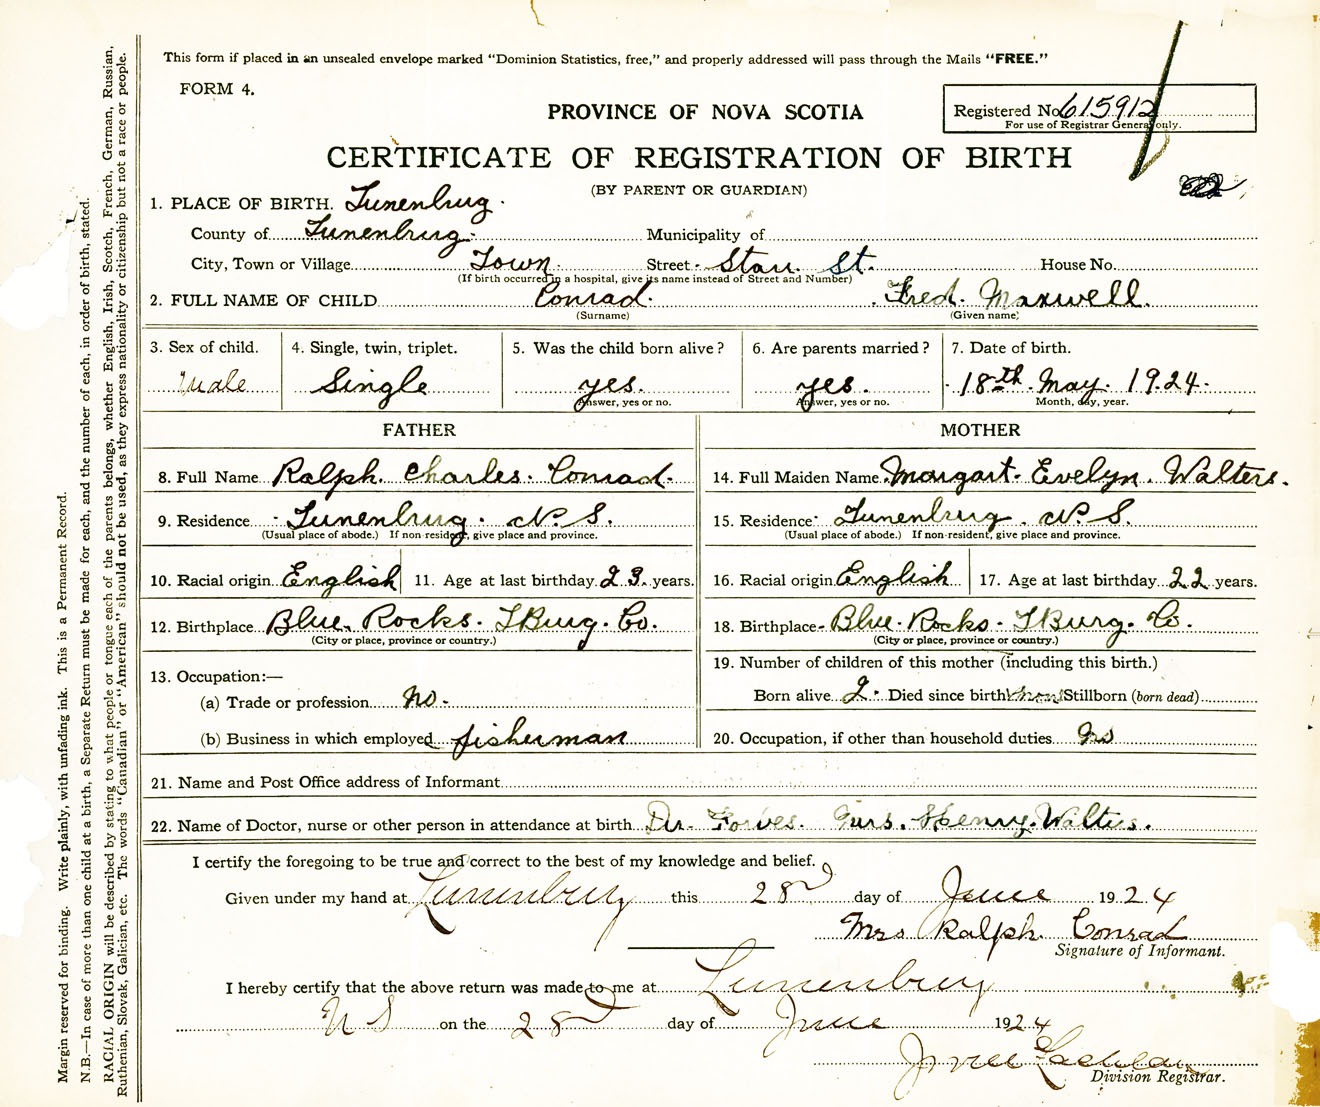 This form if placed in an unsealed envelope marked "Dominion Statistics, free," and properly addressed will pass through the Mails "FREE."
FORM 4.
PROVINCE OF NOVA SCOTIA
Registered No. 615912
For use of Registrar General only.
CERTIFICATE OF REGISTRATION OF BIRTH
(BY PARENT OR GUARDIAN)
1. PLACE OF BIRTH. Lunenburg.
County of Lunenburg. Municipality of
City, Town or Village Town. Street Starr St. House No.
(If birth occurred in a hospital, give its name instead of Street and Number)
2. FULL NAME OF CHILD Conrad. Fred. Maxwell.
(Surname) (Given name)
3. Sex of child. 4. Single, twin, triplet. 5. Was the child born alive? 6. Are parents married? 7. Date of birth.
Male Single yes. yes. 18th May. 1924.
Answer, yes or no. Answer, yes or no. Month, day, year.
FATHER MOTHER
8. Full Name Ralph. Charles. Conrad. 14. Full Maiden Name Margart. Evelyn. Walters.
9. Residence Lunenburg. N.S. 15. Residence Lunenburg. N.S.
(Usual place of abode.) If non-resident, give place and province. (Usual place of abode.) If non-resident, give place and province.
10. Racial origin English 11. Age at last birthday 23 years. 16. Racial origin English 17. Age at last birthday 22 years.
12. Birthplace Blue Rocks. LBurg. Co. 18. Birthplace Blue. Rocks. LBurg. Co.
(City or place, province or country.) (City or place, province or country.)
13. Occupation:— 19. Number of children of this mother (including this birth.)
(a) Trade or profession no. Born alive 2. Died since birth Stillborn (born dead)
(b) Business in which employed fisherman 20. Occupation, if other than household duties no
21. Name and Post Office address of Informant
22. Name of Doctor, nurse or other person in attendance at birth Dr. Forbes. Mrs. Henry. Walters.
I certify the foregoing to be true and correct to the best of my knowledge and belief.
Given under my hand at Lunenburg this 28 day of June 1924
Mrs Ralph Conrad
Signature of Informant.
I hereby certify that the above return was made to me at Lunenburg
N S on the 28 day of June 1924
Division Registrar.
Margin reserved for binding. Write plainly, with unfading ink. This is a Permanent Record.
N.B.—In case of more than one child at a birth, a Separate Return must be made for each, and the number of each, in order of birth, stated.
RACIAL ORIGIN will be described by stating to what people or tongue each of the parents belongs, whether English, Irish, Scotch, French, German, Russian,
Ruthenian, Slovak, Galician, etc. The words "Canadian" or "American" should not be used, as they express nationality or citizenship but not a race or people.